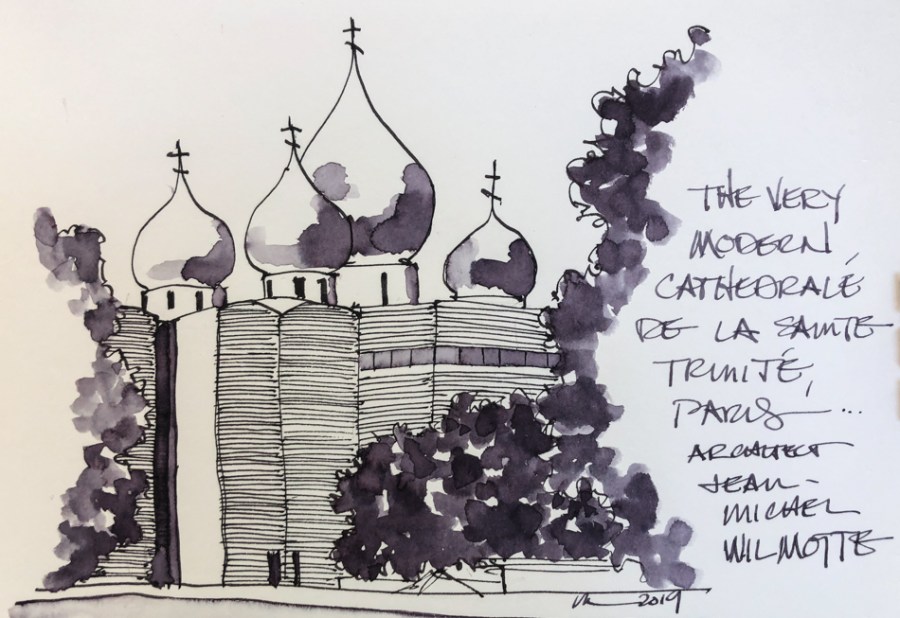 THE VERY
MODERN,
CATHEDRALE
DE LA SAINTE
TRINITÉ,
PARIS...
ARCHITECT
JEAN-
MICHEL
WILMOTTE
2019